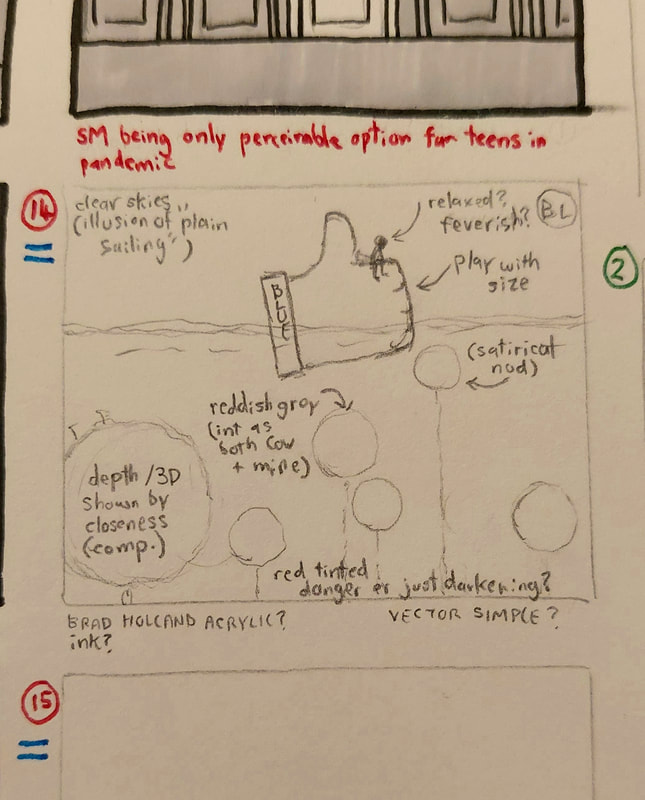 SM being only perceivable option for teens in
pandemic
14
clear skies,,
(illusion of plain
sailing")
relaxed?
feverish?
BL
play with
size
BLUE
2
(satirical
nod)
reddish gray
(int as
both cow
+ mine)
depth/3D
shown by
closeness
(comp.)
red tinted
danger or just darkening?
BRAD HOLLAND ACRYLIC?
ink?
VECTOR SIMPLE?
15